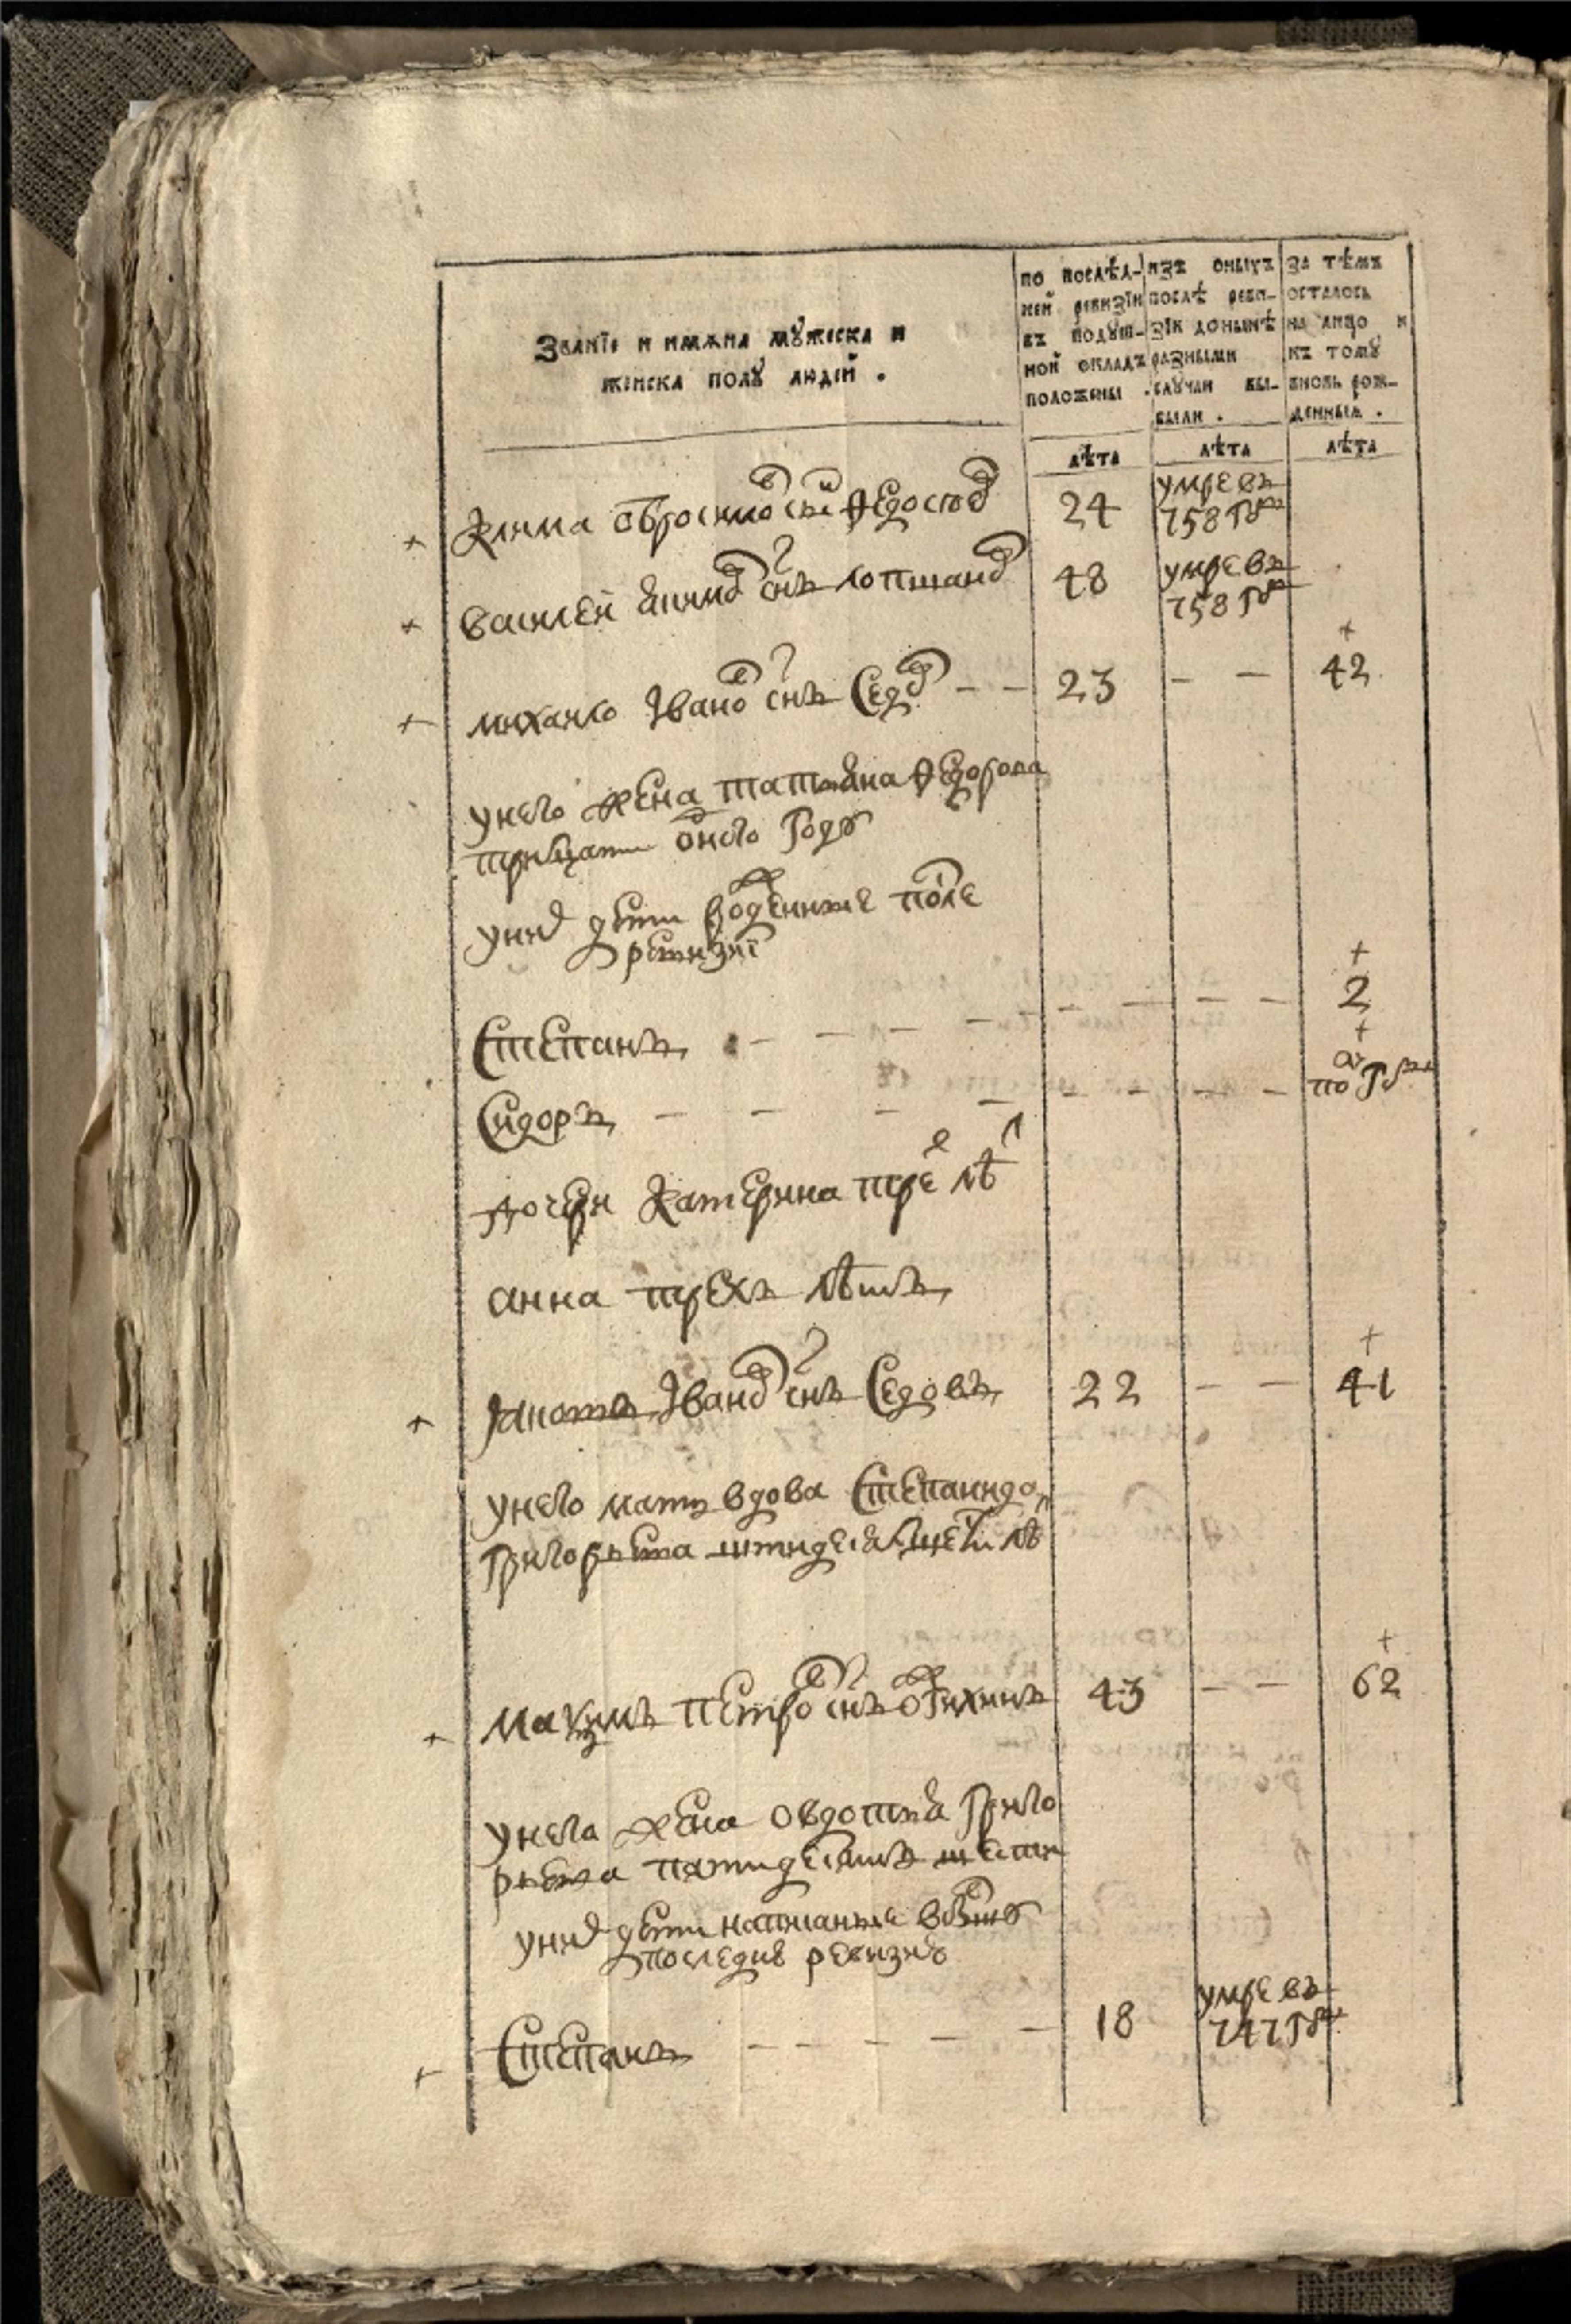 Званїе и имѧна мꙋжеска и
женска полꙋ людей .
по послѣд-
ней ревизїи
въ подꙋш-
ной окладъ
положены .
изъ оныхъ
послѣ реви-
зїи донынѣ
разными
слꙋчаи вы-
были .
за тѣмъ
осталось
на лицо и
къ томꙋ
вновь рож-
денныѧ .
лѣта
лѣта
лѣта
Клима снъ Ѳедосѣев 24 умре въ
758 гдꙋ
василей снъ лопшанов 48 умре въ
758 гдꙋ
михаило Iванов снъ Седов 23 42
у него жена татьяна Ѳедорова
тритцати одного году
у них дети рожденные после
ревизиї
Степанъ 2
Сидоръ по гдꙋ
дочери Катерина трех лѣт
анна трехъ лѣтъ
Iванов снъ Седовъ 22 41
у него мать вдова Степанида
Григорьева лѣт
Максимъ Петров снъ 43 62
у него жена овдотья Григо
рьева пятидесятъ шести
у них дети написанные в бывшую
последнюю ревизию
Степанъ 18 умре въ
747 гдꙋ